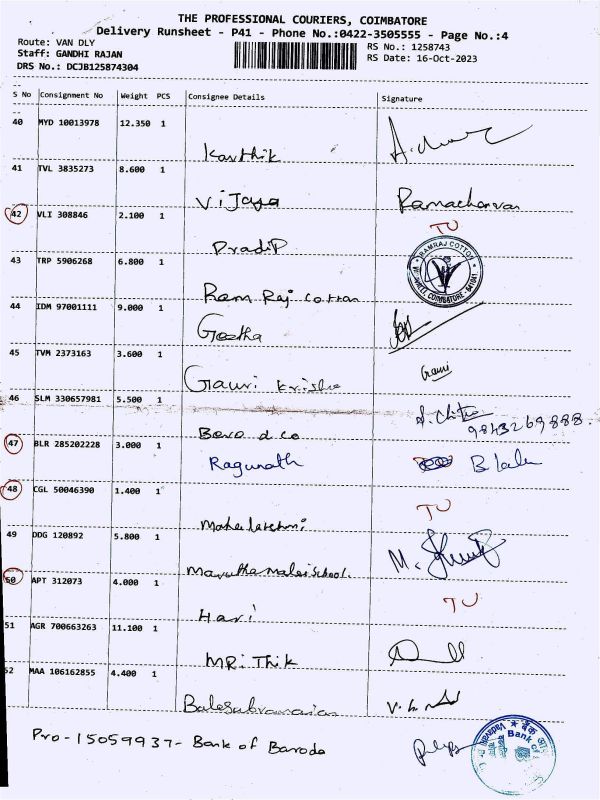 THE PROFESSIONAL COURIERS, COIMBATORE
Delivery Runsheet - P41 - Phone No.:0422-3505555 - Page No.:4
Route: VAN DLY
Staff: GANDHI RAJAN
DRS No.: DCJB125874304
RS No.: 1258743
RS Date: 16-Oct-2023
S No Consignment No Weight PCS Consignee Details Signature
40 MYD 10013978 12.350 1
Karthik
41 TVL 3835273 8.600 1
Vijaya Ramachanran
42 VLI 308846 2.100 1
TU
Pradip
43 TRP 5906268 6.800 1
RAMRAJ COTTON
COIMBATORE
Ram Raj Cottan
44 IDM 97001111 9.000 1
Geetha
45 TVM 2373163 3.600 1
Gauri
Gauri Krisha
46 SLM 330657981 5.500 1
A. Chitra
9843269888
47 BLR 285202228 3.000 1
Ragunath
48 CGL 50046390 1.400 1
TU
Mahalakshmi
49 DDG 120892 5.800 1
Maruthamalai School.
50 APT 312073 4.000 1
TU
Hari
51 AGR 700663263 11.100 1
MRi Thik
52 MAA 106162855 4.400 1
Balasubramanian
Pro-15059937- Bank of Baroda
Bank of